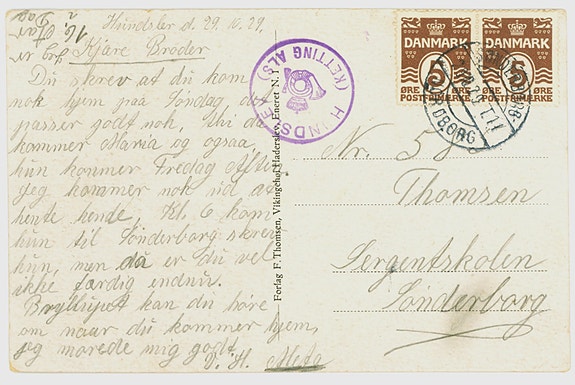 Hundslev d. 29.10.29.
Kjære Broder
Du skrev at du kom
nok hjem paa Søndag, det
passer godt nok
kommer Maria og ogsaa,
hun kommer Fredag Aften
jeg kommer nok ned at
hente hende, Kl. 6 kom
hun til Sønderborg skrev
hun, men da er du vel
ikke færdig endnu.
Bryllupet kan du høre
om naar du kommer hjem,
jeg morede mig godt
Meta
HUNDSLEV
(KETTING ALS)
Forlag F. Thomsen, Vikingehof, Haderslev, Eneret N. 1
DANMARK
5
ØRE
POSTFRIMÆRKE
DANMARK
5
ØRE
POSTFRIMÆRKE
Nr. 58
Thomsen
Sergentskolen
Sønderborg